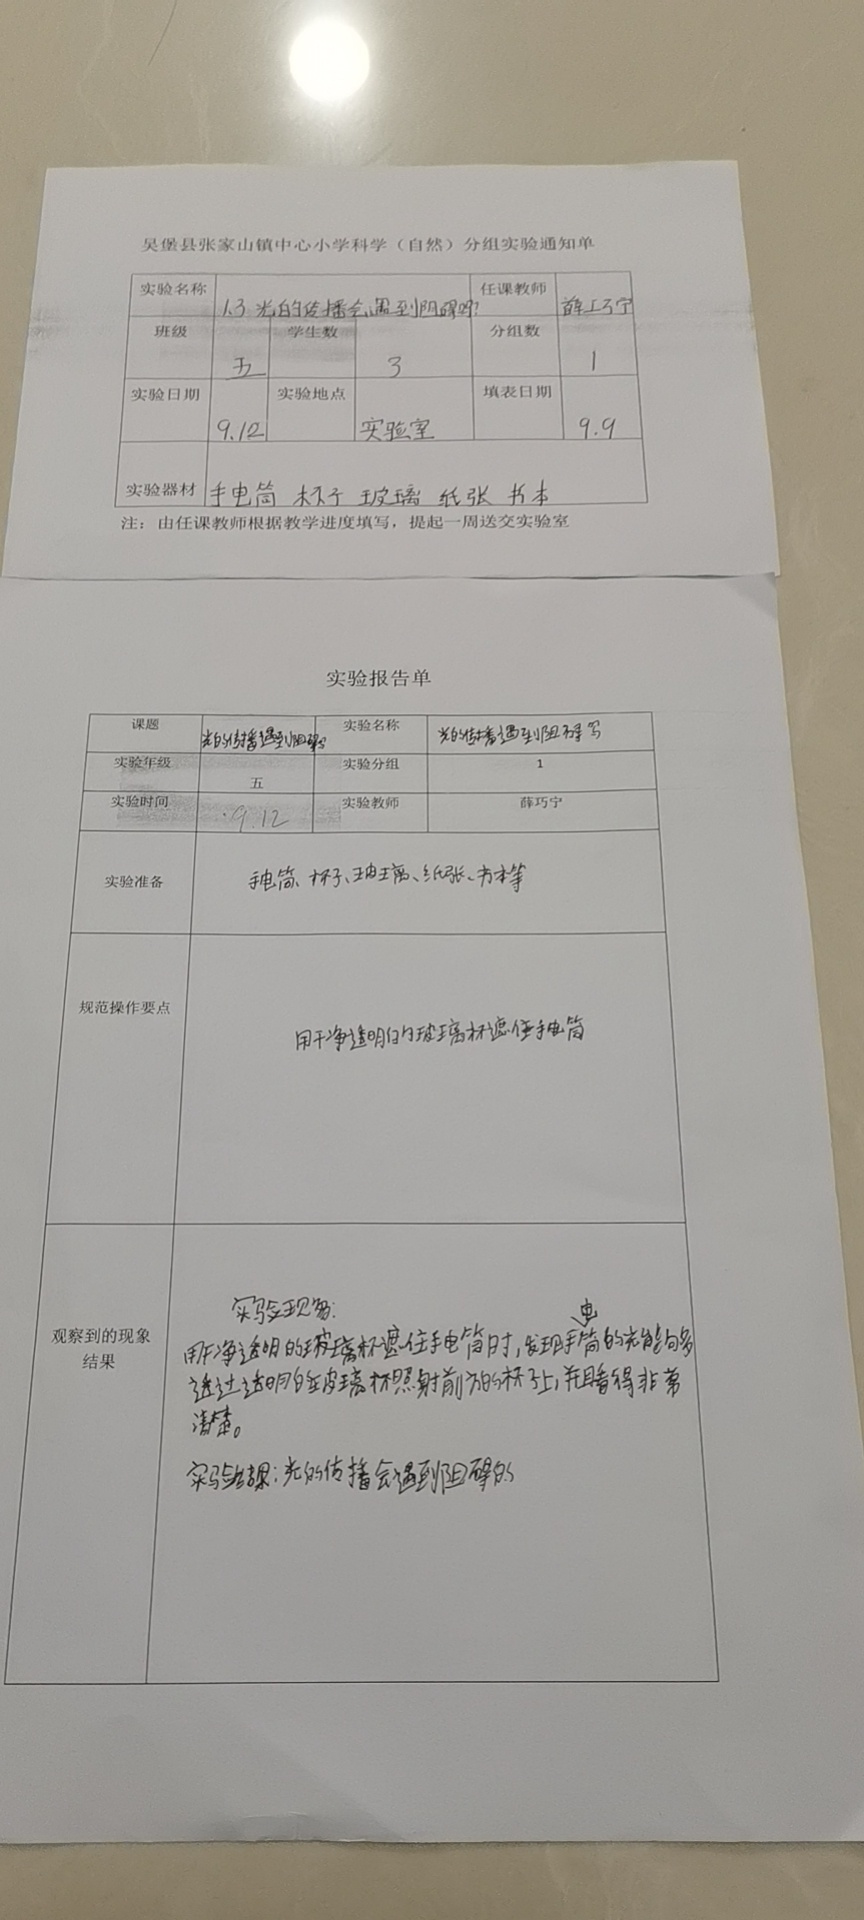 吴堡县张家山镇中心小学科学（自然）分组实验通知单
实验名称 1.3 光的传播会遇到阻碍吗? 任课教师 薛巧宁
班级 五 学生数 3 分组数 1
实验日期 9.12 实验地点 实验室 填表日期 9.9
实验器材 手电筒 杯子 玻璃 纸张 书本
注：由任课教师根据教学进度填写，提起一周送交实验室
实验报告单
课题 光的传播遇到阻碍 实验名称 光的传播遇到阻碍
实验年级 五 实验分组 1
实验时间 9.12 实验教师 薛巧宁
实验准备 手电筒、杯子、玻璃、纸张、书本等
规范操作要点 用干净透明的玻璃杯遮住手电筒
观察到的现象
结果
实验现象:
用干净透明的玻璃杯遮住手电筒时，发现手电筒的光能够
透过透明的玻璃杯照射前方的杯子上，并且看得非常
清楚。
实验结果:光的传播会遇到阻碍的